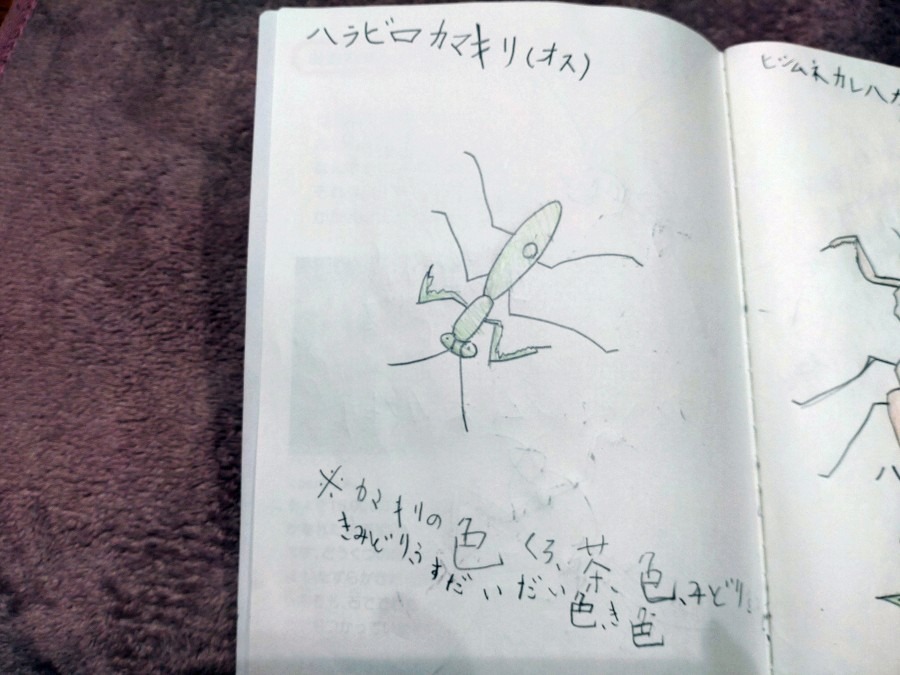 ハラビロカマキリ(オス)
ヒシムネカレハカ
※カマキリの色 くろ、茶色、みどり、
きみどり、うすだいだい色、き色